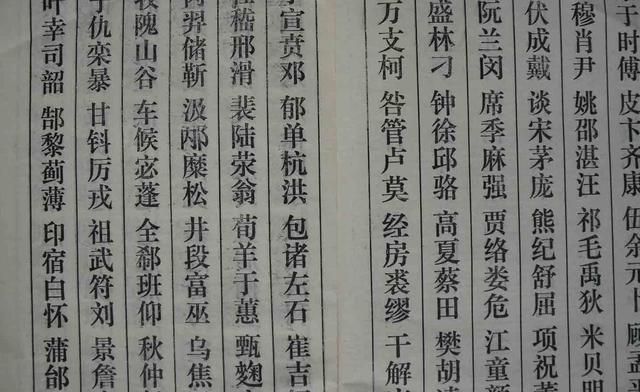 于时傅 皮卞齐康 伍余元卜 顾孟
穆肖尹 姚邵湛汪 祁毛禹狄 米贝明
伏成戴 谈宋茅庞 熊纪舒屈 项祝
阮兰闵 席季麻强 贾络娄危 江童
盛林刁 钟徐邱骆 高夏蔡田 樊胡
万支柯 昝管卢莫 经房裘缪 干解
宣贲邓 郁单杭洪 包诸左石 崔吉
嵇邢滑 裴陆荥翁 荀羊于蕙 甄麹
羿储靳 汲邴糜松 井段富巫 乌焦
隗山谷 车候宓蓬 全郗班仰 秋仲
仇栾暴 甘钭厉戎 祖武符刘 景詹
叶幸司韶 郜黎蓟薄 印宿白怀 蒲邰